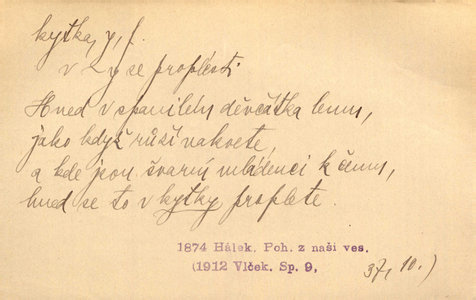 kytka, y, f.
v k-y se proplésti:
Hned v spanilém děvčátka lemu,
jako když růží nakvete,
a kde jsou švarní mládenci k čemu,
hned se to v kytky proplete.
1874 Hálek. Poh. z naší ves.
(1912 Vlček. Sp. 9,
37, 10.)